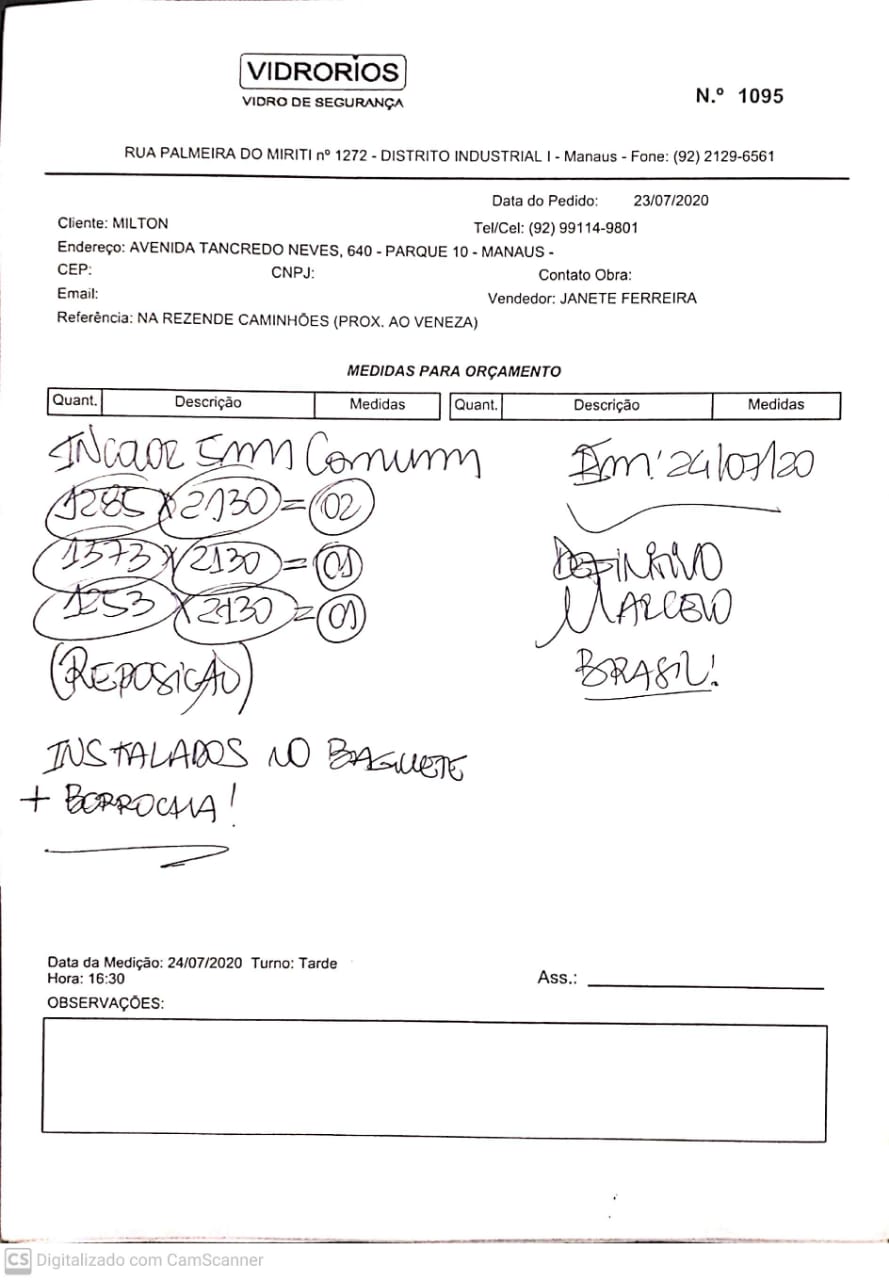 VIDRORIOS
VIDRO DE SEGURANÇA
N.º 1095
RUA PALMEIRA DO MIRITI nº 1272 - DISTRITO INDUSTRIAL I - Manaus - Fone: (92) 2129-6561
Data do Pedido: 23/07/2020
Cliente: MILTON
Tel/Cel: (92) 99114-9801
Endereço: AVENIDA TANCREDO NEVES, 640 - PARQUE 10 - MANAUS -
CEP: CNPJ: Contato Obra:
Email:
Vendedor: JANETE FERREIRA
Referência: NA REZENDE CAMINHÕES (PROX. AO VENEZA)
MEDIDAS PARA ORÇAMENTO
Quant. Descrição Medidas Quant. Descrição Medidas
INCOLOR 5mm Comum
1285 x 2130 = 02
1373 x 2130 = 01
1253 x 2130 = 01
(REPOSIÇÃO)
INSTALADOS NO BAGUETE
+ BORROCHA!
Em: 24/07/20
DEFINITIVO
MARCELO
BRASIL!
Data da Medição: 24/07/2020 Turno: Tarde
Hora: 16:30
Ass.:
OBSERVAÇÕES:
CS Digitalizado com CamScanner